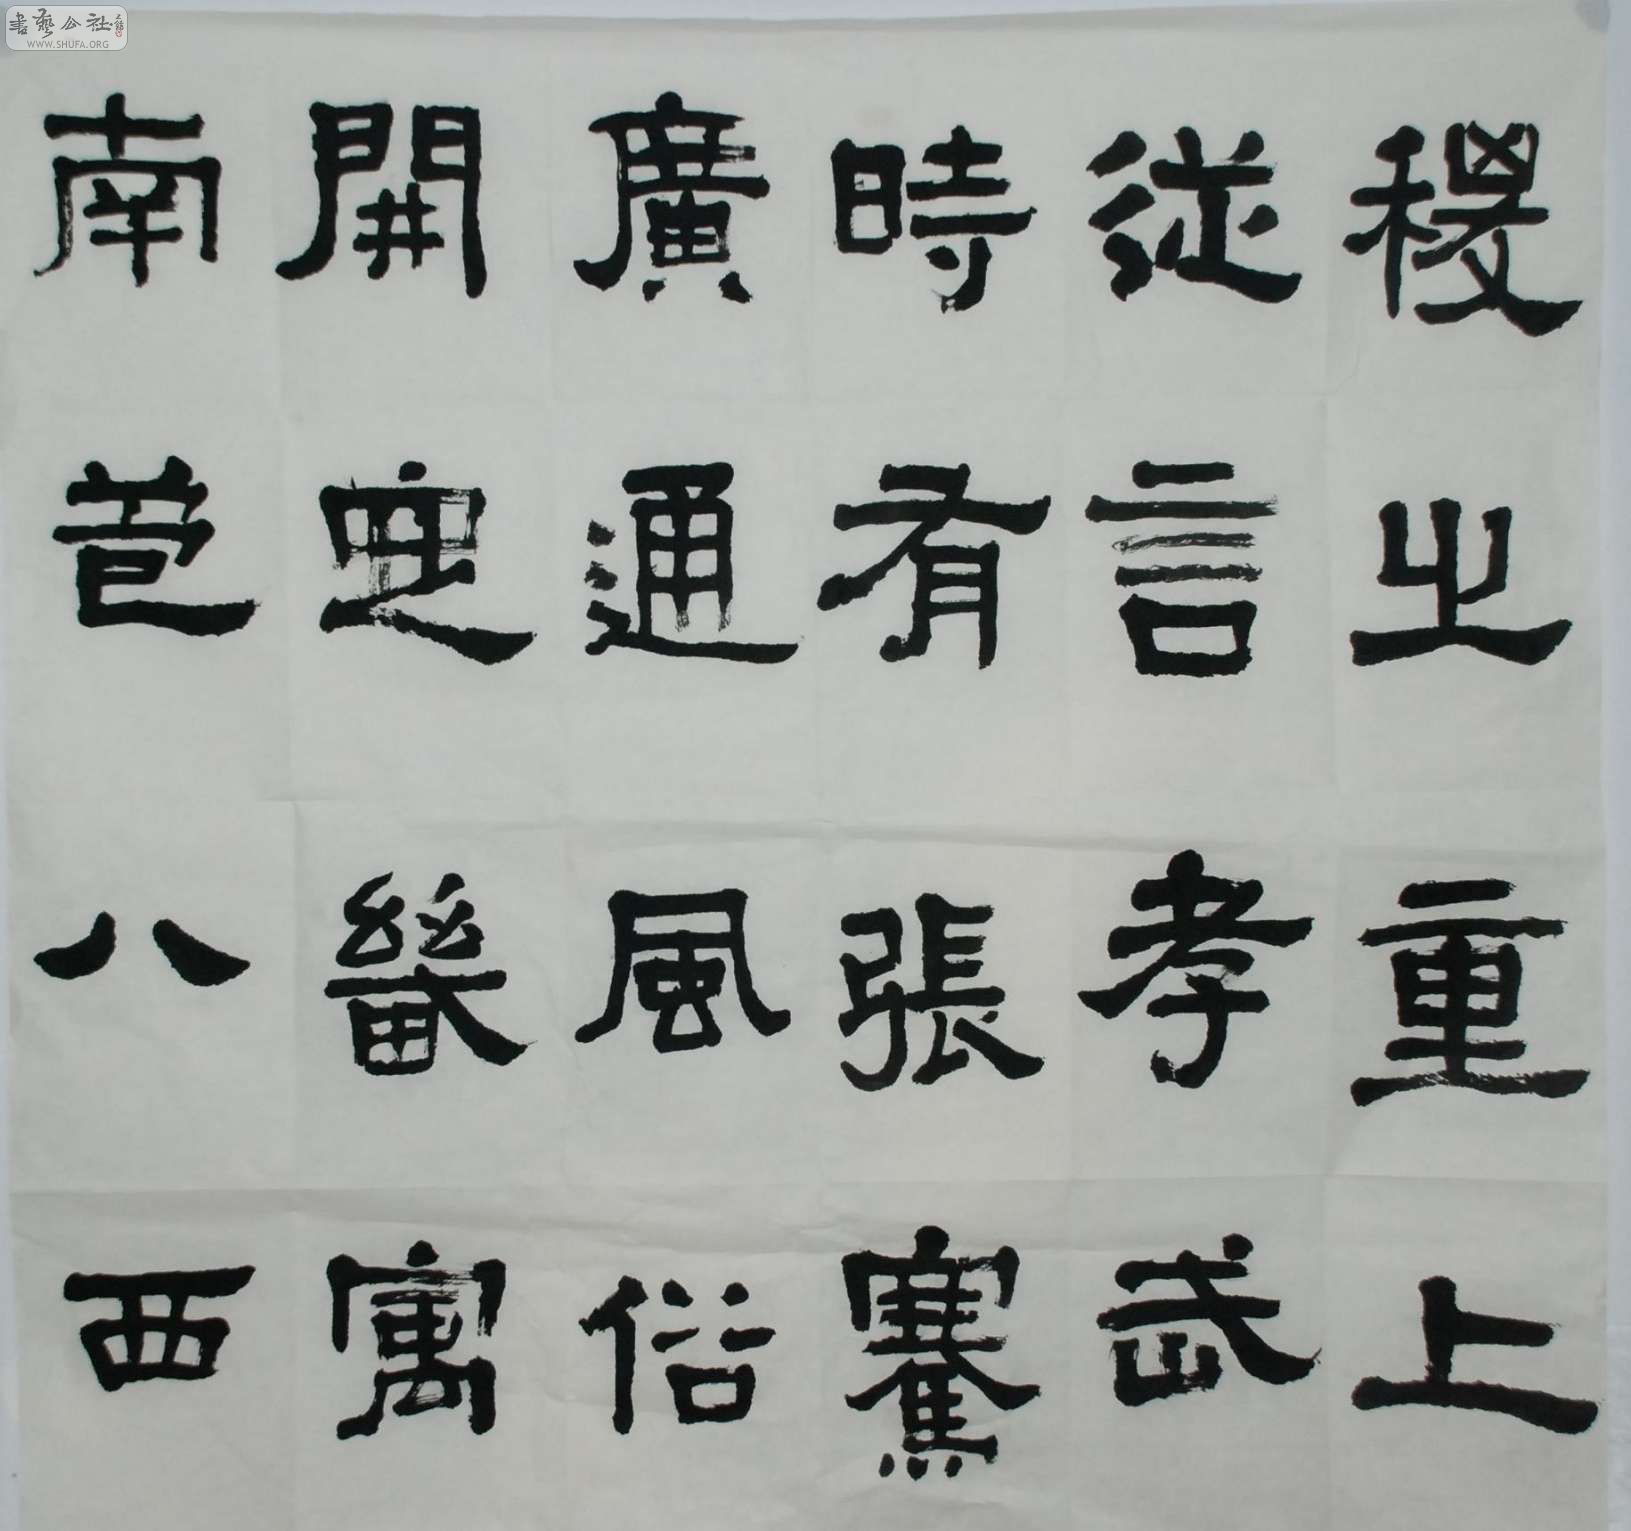 稷之重上
從言孝武
時有張騫
廣通風俗
開定畿寓
南苞八西
書藝公社
WWW.SHUFA.ORG